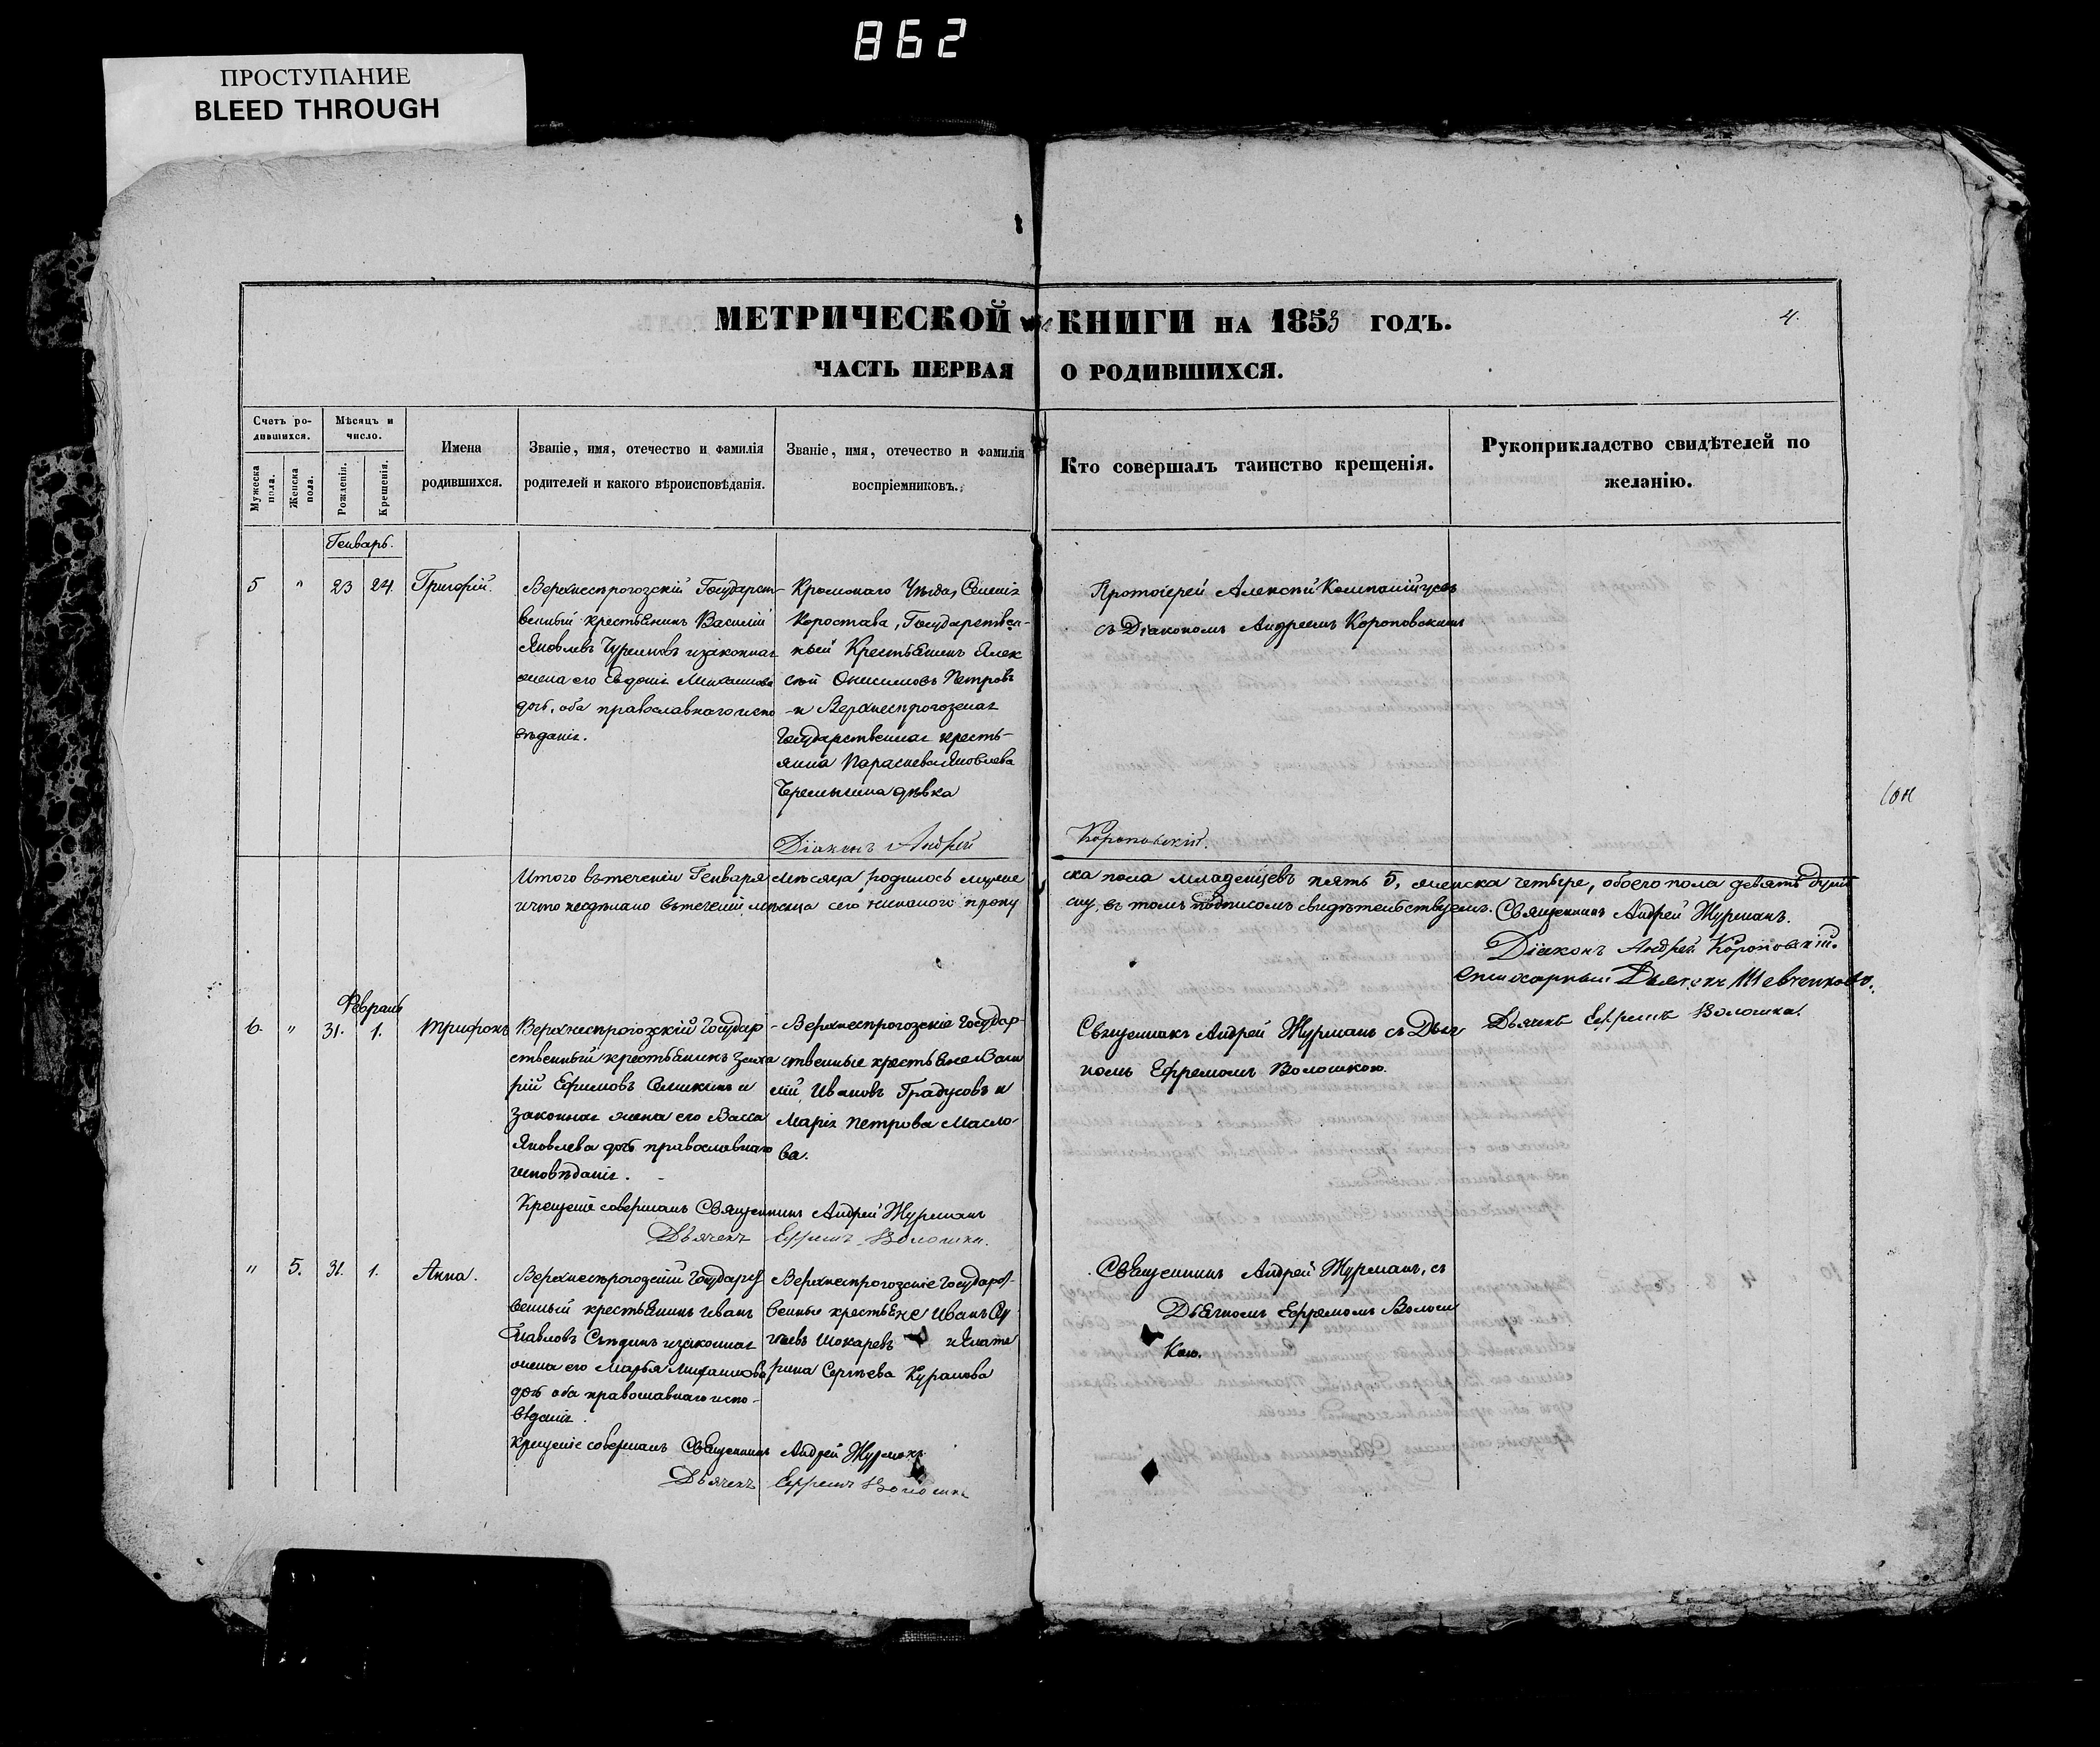 862
ПРОСТУПАНИЕ
BLEED THROUGH
МЕТРИЧЕСКОЙ КНИГИ НА 1853 ГОДЪ.
4.
ЧАСТЬ ПЕРВАЯ О РОДИВШИХСЯ.
Счетъ родившихся.
Мужеска пола.
Женска пола.
Мѣсяцъ и число.
Рожденія.
Крещенія.
Имена родившихся.
Званіе, имя, отечество и фамилія родителей и какого вѣроисповѣданія.
Званіе, имя, отечество и фамилія воспріемниковъ.
Кто совершалъ таинство крещенія.
Рукоприкладство свидѣтелей по желанію.
Генварь.
5 " 23 24. Григорій.
Верхнесѣрогозскій Государст-
венный крестьянинъ Василій
Яковлевъ и законная
жена его Евдокія Михаилова
дочь, оба православнаго испо
вѣданія.
Уѣзда, Селенія
Государствен-
ный Крестьянинъ Алек
сѣй Онисимовъ Петровъ
и Верхнесѣрогозская
Государственная кресть-
янка Параскева Яковлева
дѣвка
Протоіерей Алексѣй
съ Діакономъ Андреемъ Короповскимъ
Діаконъ Андрей Короповскій.
Итого въ теченіи Генваря мѣсяца родилось мужеска пола младенцевъ пять 5, женска четыре, обоего пола девять душъ
и что не сдѣлано въ теченіи мѣсяца сего никакого пропуску, въ томъ подписомъ свидѣтельствуемъ. Священникъ Андрей Журманъ.
Діаконъ Андрей Короповскій.
Стихарный Дьячекъ Шевченковъ.
Дьячекъ Ефремъ Волошка.
Февраль
6. " 31. 1. Трифонъ
Верхнесѣрогозскій Государ
ственный крестьянинъ Заха
рій Ефимовъ и
законная жена его Васса
Яковлева дочь православнаго
исповѣданія.
Верхнесѣрогозскіе Государ-
ственные крестьяне Васи
лій Ивановъ Градусовъ и
Марія Петрова Масло-
ва.
Священникъ Андрей Журманъ съ Дьяч
комъ Ефремомъ Волошкою.
Крещеніе совершалъ Священникъ Андрей Журманъ
Дьячекъ Ефремъ Волошка.
" 5. 31. 1. Анна.
Верхнесѣрогозскій Государст
венный крестьянинъ Иванъ
Павловъ и законная
жена его Марья Михаилова
дочь оба православнаго испо-
вѣданія.
Верхнесѣрогозскіе Государст-
венные крестьяне Иванъ
Шокаревъ и Екате
рина Сергѣева
Священникъ Андрей Журманъ, съ
Дьячкомъ Ефремомъ Волош
кою.
Крещеніе совершалъ Священникъ Андрей Журманъ
Дьячекъ Ефремъ Волошка